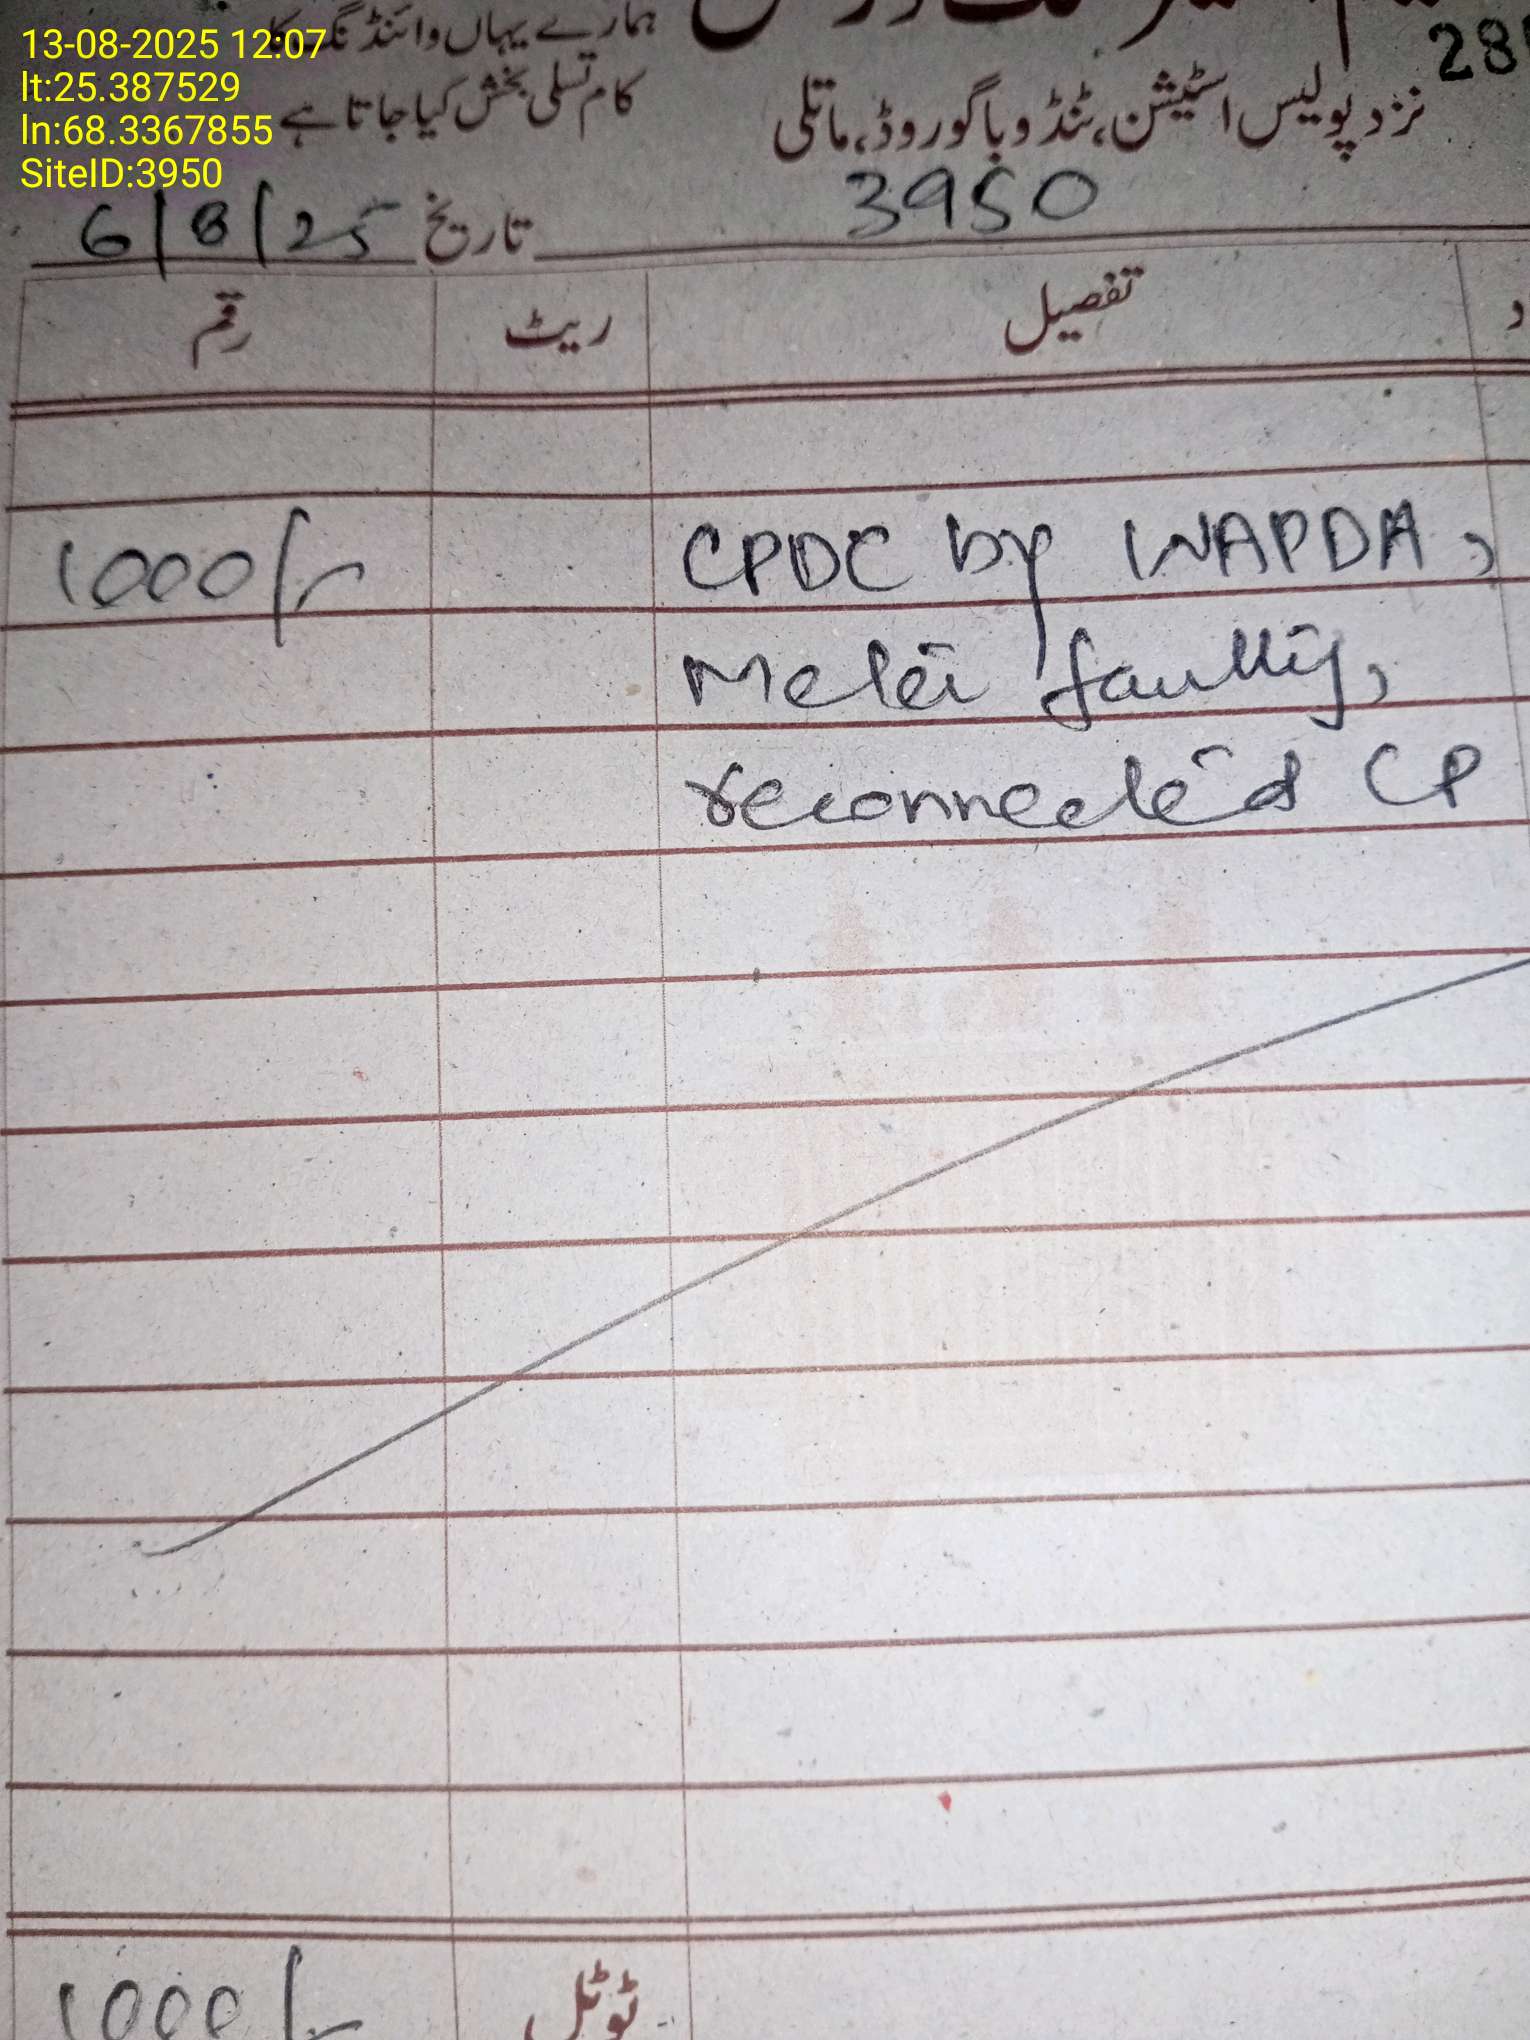 13-08-2025 12:07
lt:25.387529
ln:68.3367855
SiteID:3950
ہمارے یہاں وائنڈنگ کا
کام تسلی بخش کیا جاتا ہے
28
نزد پولیس اسٹیشن، ٹنڈو باگو روڈ، ماتلی
3950
تاریخ 6/8/25
تفصیل ریٹ رقم
CPDC by WAPDA, 1000/-
Meter faulty,
reconnected CP
ٹوٹل 1000/-